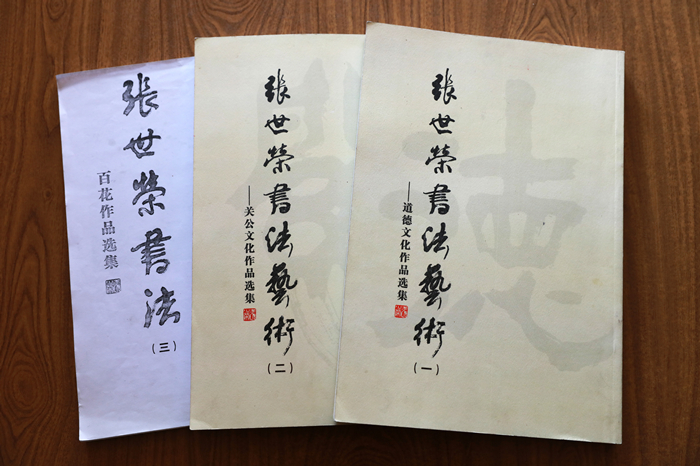 張世榮書法藝術
——道德文化作品选集
(一)
張世榮書法藝術
——关公文化作品选集
(二)
張世榮書法
百花作品选集
(三)
德